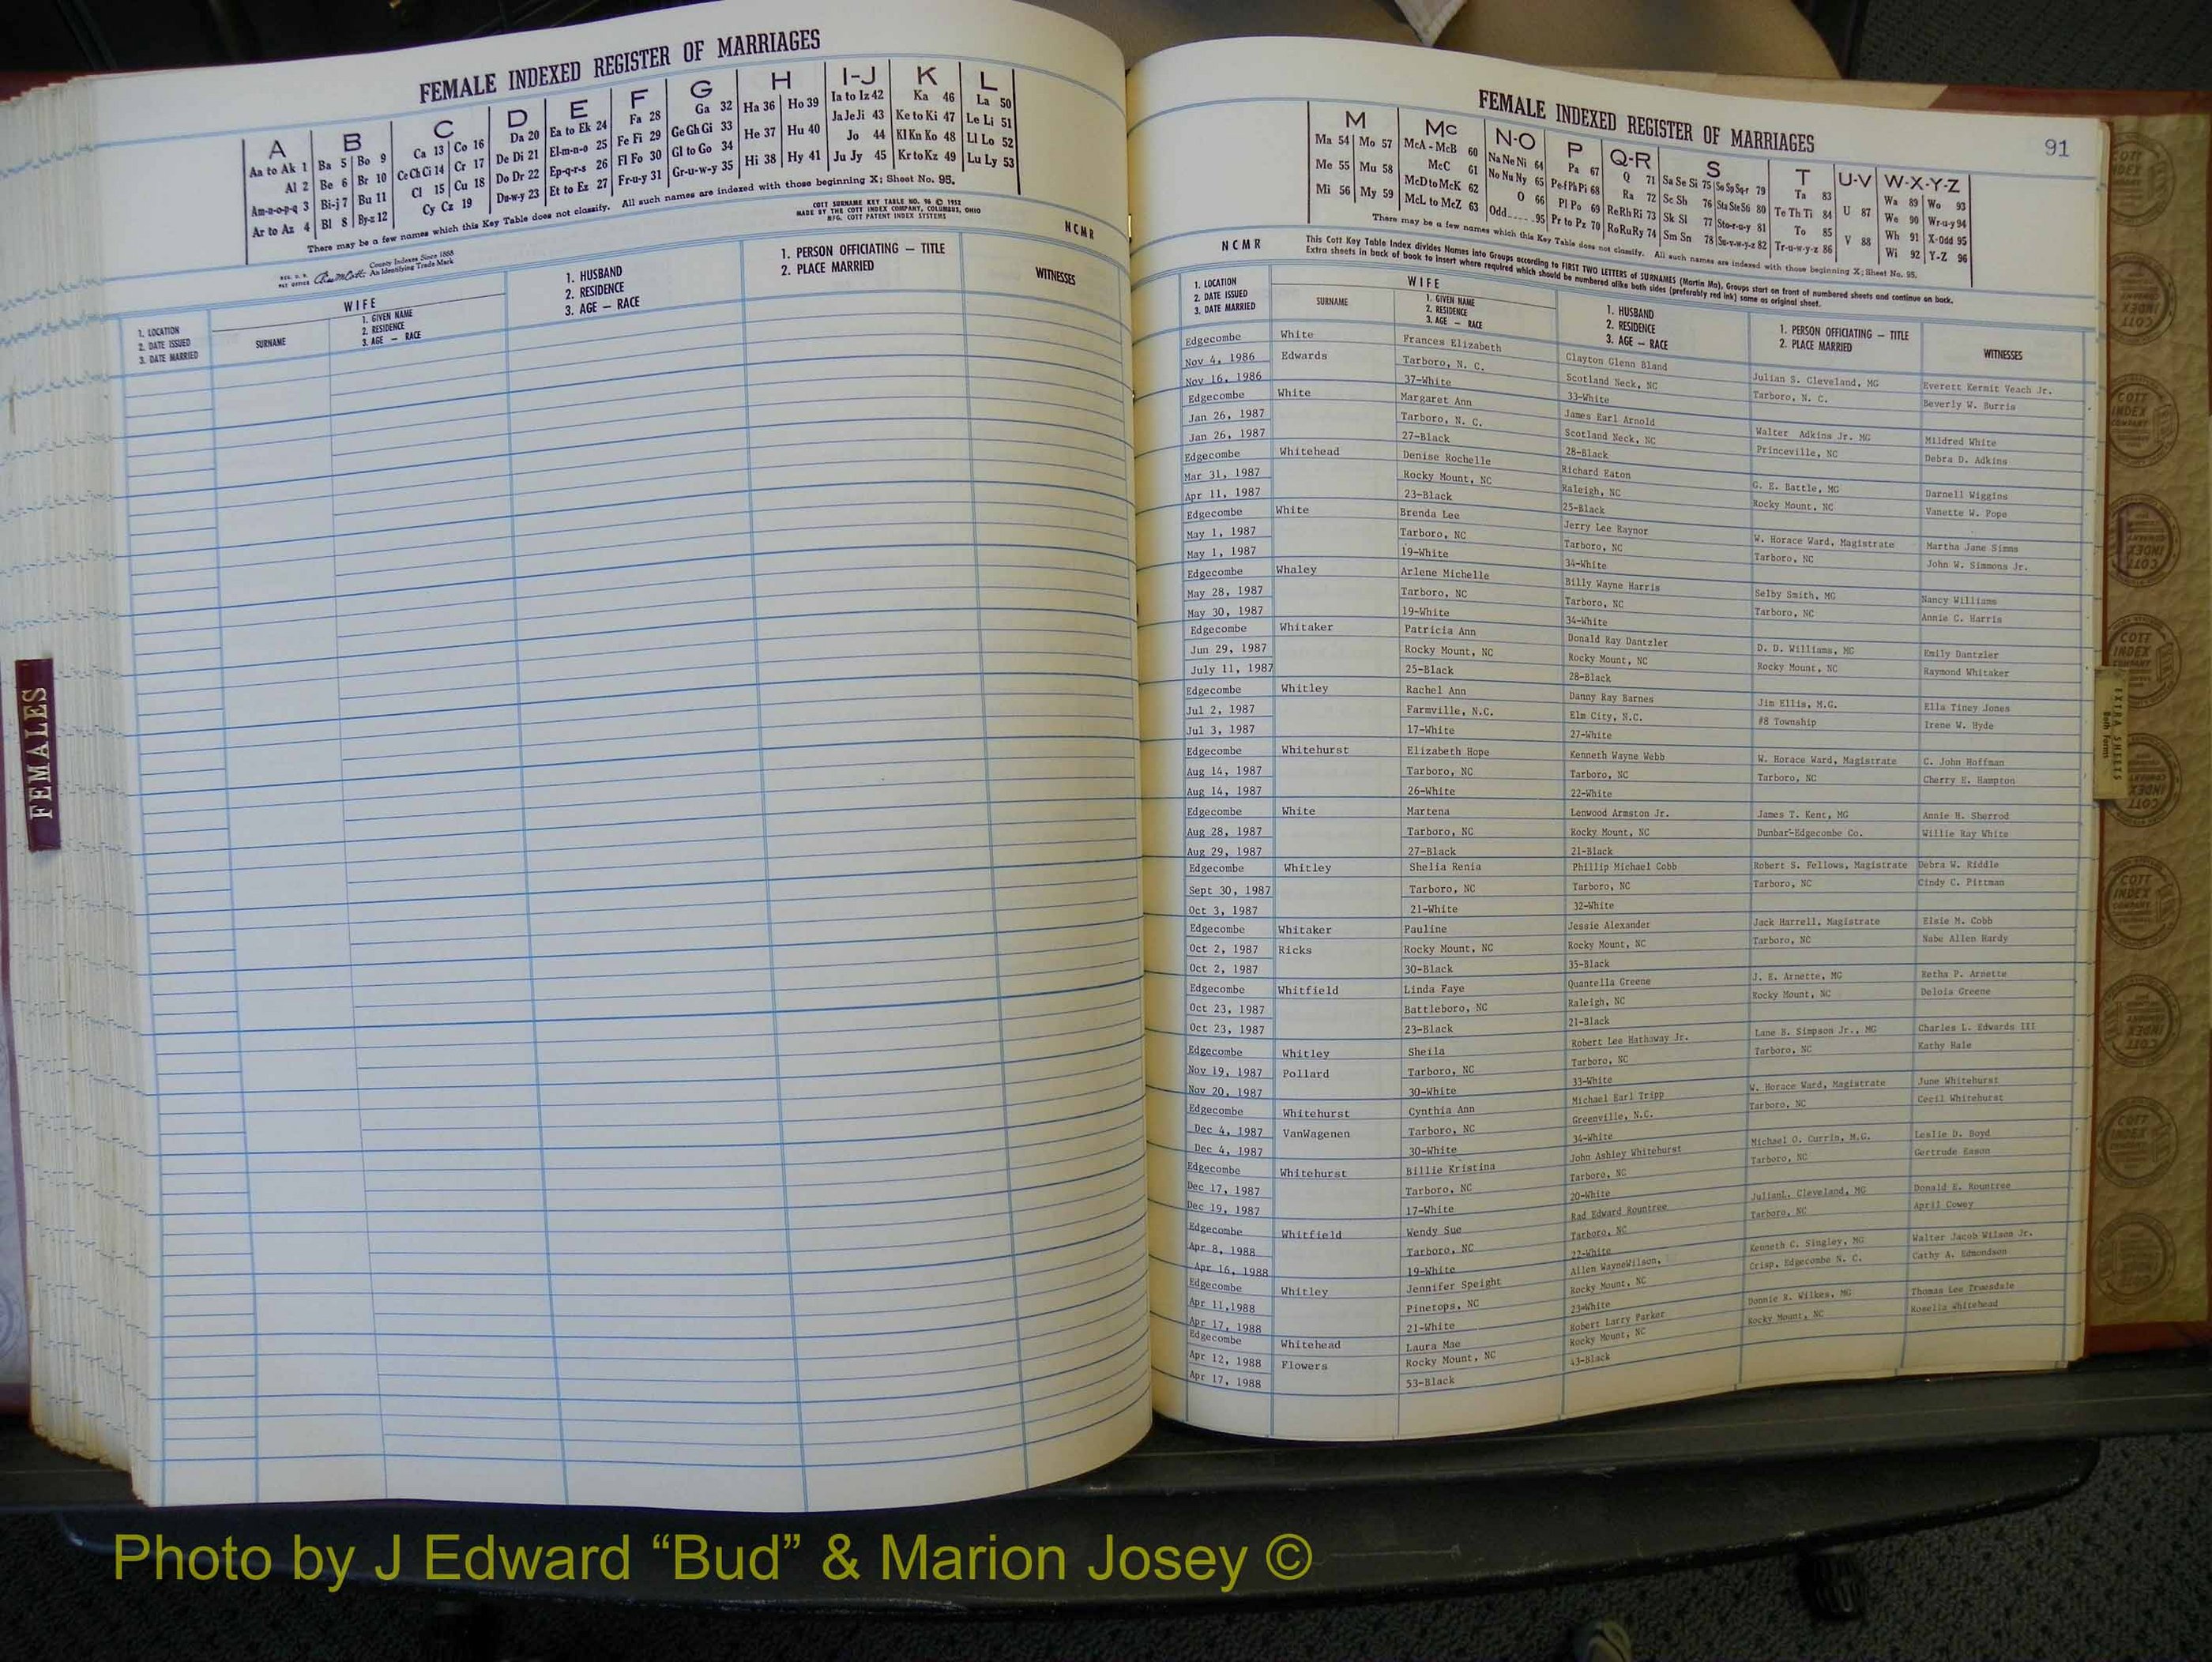 FEMALE INDEXED REGISTER OF MARRIAGES
A B C D E F G H I-J K L
Aa to Ak 1 Ba 5 Bo 9 Ca 13 Co 16 Da 20 Ea to Ek 24 Fa 28 Ga 32 Ha 36 Ho 39 Ia to Iz 42 Ka 46 La 50
Al 2 Be 6 Br 10 Ce Ch Ci 14 Cr 17 De Di 21 El-m-n-o 25 Fe Fi 29 Ge Gh Gi 33 He 37 Hu 40 Ja Je Ji 43 Ke to Ki 47 Le Li 51
Am-n-o-p-q 3 Bi-j 7 Bu 11 Cl 15 Cu 18 Do Dr 22 Ep-q-r-s 26 Fl Fo 30 Gl to Go 34 Hi 38 Hy 41 Jo 44 Kl Kn Ko 48 Ll Lo 52
Ar to Az 4 Bl 8 By-z 12 Cy Cz 19 Du-w-y 23 Et to Ez 27 Fr-u-y 31 Gr-u-w-y 35 Ju Jy 45 Kr to Kz 49 Lu Ly 53
There may be a few names which this Key Table does not classify. All such names are indexed with those beginning X; Sheet No. 95.
COTT SURNAME KEY TABLE NO. 96 © 1952
MADE BY THE COTT INDEX COMPANY, COLUMBUS, OHIO
MFG. COTT PATENT INDEX SYSTEMS
NCMR
County Indexes Since 1888
An Identifying Trade Mark
1. LOCATION
2. DATE ISSUED
3. DATE MARRIED
WIFE
SURNAME
1. GIVEN NAME
2. RESIDENCE
3. AGE — RACE
1. HUSBAND
2. RESIDENCE
3. AGE — RACE
1. PERSON OFFICIATING — TITLE
2. PLACE MARRIED
WITNESSES
FEMALES
FEMALE INDEXED REGISTER OF MARRIAGES
91
M Mc N-O P Q-R S T U-V W-X-Y-Z
Ma 54 Mo 57 McA - McB 60 Na Ne Ni 64 Pa 67 Q 71 Sa Se Si 75 So Sp Sq-r 79 Ta 83 Wa 89 Wo 93
Me 55 Mu 58 McC 61 No Nu Ny 65 Pe-f Ph Pi 68 Ra 72 Sc Sh 76 Sta Ste Sti 80 Te Th Ti 84 U 87 We 90 Wr-u-y 94
Mi 56 My 59 McD to McK 62 O 66 Pl Po 69 Re Rh Ri 73 Sk Sl 77 Sto-r-u-y 81 To 85 V 88 Wh 91 X-Odd 95
McL to McZ 63 Odd 95 Pr to Pz 70 Ro Ru Ry 74 Sm Sn 78 Su-v-w-y-z 82 Tr-u-w-y-z 86 Wi 92 Y-Z 96
There may be a few names which this Key Table does not classify. All such names are indexed with those beginning X; Sheet No. 95.
NCMR
This Cott Key Table Index divides Names into Groups according to FIRST TWO LETTERS of SURNAMES (Martin Ma). Groups start on front of numbered sheets and continue on back.
Extra sheets in back of book to insert where required which should be numbered alike both sides (preferably red ink) same as original sheet.
1. LOCATION
2. DATE ISSUED
3. DATE MARRIED
WIFE
SURNAME
1. GIVEN NAME
2. RESIDENCE
3. AGE — RACE
1. HUSBAND
2. RESIDENCE
3. AGE — RACE
1. PERSON OFFICIATING — TITLE
2. PLACE MARRIED
WITNESSES
Edgecombe White Frances Elizabeth Clayton Glenn Bland Julian S. Cleveland, MG Everett Kermit Veach Jr.
Nov 4, 1986 Edwards Tarboro, N. C. Scotland Neck, NC Tarboro, N. C. Beverly W. Burris
Nov 16, 1986 37-White 33-White
Edgecombe White Margaret Ann James Earl Arnold Walter Adkins Jr. MG Mildred White
Jan 26, 1987 Tarboro, N. C. Scotland Neck, NC Princeville, NC Debra D. Adkins
Jan 26, 1987 27-Black 28-Black
Edgecombe Whitehead Denise Rochelle Richard Eaton G. E. Battle, MG Darnell Wiggins
Mar 31, 1987 Rocky Mount, NC Raleigh, NC Rocky Mount, NC Vanette W. Pope
Apr 11, 1987 23-Black 25-Black
Edgecombe White Brenda Lee Jerry Lee Raynor W. Horace Ward, Magistrate Martha Jane Simms
May 1, 1987 Tarboro, NC Tarboro, NC Tarboro, NC John W. Simmons Jr.
May 1, 1987 19-White 34-White
Edgecombe Whaley Arlene Michelle Billy Wayne Harris Selby Smith, MG Nancy Williams
May 28, 1987 Tarboro, NC Tarboro, NC Tarboro, NC Annie C. Harris
May 30, 1987 19-White 34-White
Edgecombe Whitaker Patricia Ann Donald Ray Dantzler D. D. Williams, MG Emily Dantzler
Jun 29, 1987 Rocky Mount, NC Rocky Mount, NC Rocky Mount, NC Raymond Whitaker
July 11, 1987 25-Black 28-Black
Edgecombe Whitley Rachel Ann Danny Ray Barnes Jim Ellis, M.G. Ella Tiney Jones
Jul 2, 1987 Farmville, N.C. Elm City, N.C. #8 Township Irene W. Hyde
Jul 3, 1987 17-White 27-White
Edgecombe Whitehurst Elizabeth Hope Kenneth Wayne Webb W. Horace Ward, Magistrate C. John Hoffman
Aug 14, 1987 Tarboro, NC Tarboro, NC Tarboro, NC Cherry E. Hampton
Aug 14, 1987 26-White 22-White
Edgecombe White Martena Lenwood Armston Jr. James T. Kent, MG Annie H. Sherrod
Aug 28, 1987 Tarboro, NC Rocky Mount, NC Dunbar-Edgecombe Co. Willie Ray White
Aug 29, 1987 27-Black 21-Black
Edgecombe Whitley Shelia Renia Phillip Michael Cobb Robert S. Fellows, Magistrate Debra W. Riddle
Sept 30, 1987 Tarboro, NC Tarboro, NC Tarboro, NC Cindy C. Pittman
Oct 3, 1987 21-White 32-White
Edgecombe Whitaker Pauline Jessie Alexander Jack Harrell, Magistrate Elsie M. Cobb
Oct 2, 1987 Ricks Rocky Mount, NC Rocky Mount, NC Tarboro, NC Nabe Allen Hardy
Oct 2, 1987 30-Black 35-Black
Edgecombe Whitfield Linda Faye Quantella Greene J. E. Arnette, MG Retha P. Arnette
Oct 23, 1987 Battleboro, NC Raleigh, NC Rocky Mount, NC Delois Greene
Oct 23, 1987 23-Black 21-Black
Edgecombe Whitley Sheila Robert Lee Hathaway Jr. Lane B. Simpson Jr., MG Charles L. Edwards III
Nov 19, 1987 Pollard Tarboro, NC Tarboro, NC Tarboro, NC Kathy Hale
Nov 20, 1987 30-White 33-White
Edgecombe Whitehurst Cynthia Ann Michael Earl Tripp W. Horace Ward, Magistrate June Whitehurst
Dec 4, 1987 VanWagenen Tarboro, NC Greenville, N.C. Tarboro, NC Cecil Whitehurst
Dec 4, 1987 30-White 34-White
Edgecombe Whitehurst Billie Kristina John Ashley Whitehurst Michael O. Currin, M.G. Leslie D. Boyd
Dec 17, 1987 Tarboro, NC Tarboro, NC Tarboro, NC Gertrude Eason
Dec 19, 1987 17-White 20-White
Edgecombe Whitfield Wendy Sue Rad Edward Rountree JulianL. Cleveland, MG Donald E. Rountree
Apr 8, 1988 Tarboro, NC Tarboro, NC Tarboro, NC April Cowey
Apr 16, 1988 19-White 22-White
Edgecombe Whitley Jennifer Speight Allen WayneWilson, Kenneth C. Singley, MG Walter Jacob Wilson Jr.
Apr 11,1988 Pinetops, NC Rocky Mount, NC Crisp, Edgecombe N. C. Cathy A. Edmondson
Apr 17, 1988 21-White 23-White
Edgecombe Whitehead Laura Mae Robert Larry Parker Donnie R. Wilkes, MG Thomas Lee Truesdale
Apr 12, 1988 Flowers Rocky Mount, NC Rocky Mount, NC Rocky Mount, NC Rosella Whitehead
Apr 17, 1988 53-Black 43-Black
EXTRA SHEETS
Both Forms
COTT INDEX COMPANY
Photo by J Edward “Bud” & Marion Josey ©